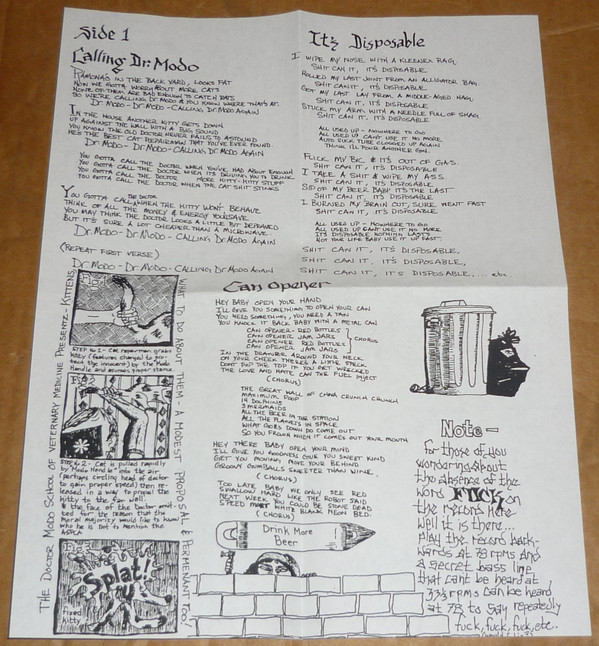 Side 1
Calling Dr. Modo
Ramona's in the back yard, looks fat
Now we gotta worry about more cats
None of them are bad enough to catch rats
So we're calling Dr. Modo & you know where that's at.
Dr. Modo - Dr. Modo - Calling Dr. Modo Again
In the house another kitty gets down
Up against the wall with a big sound
You know the old doctor never fails to astound
He's the best cat repairman that you've ever found
Dr. Modo - Dr. Modo - Calling Dr. Modo again
You gotta call the doctor when you've had about enough
You gotta call the doctor when it's driving you to drink
You gotta call the doctor more kitty-kitty stuff
You gotta call the doctor when the cat shit stinks
You gotta call the doctor when the kitty won't behave
Think of all the money & energy you save
You may think the doctor looks a little bit depraved
But it's sure a lot cheaper than a microwave
Dr. Modo - Dr. Modo - Calling Dr. Modo Again
(Repeat first verse)
Dr. Modo - Dr. Modo - Calling Dr. Modo Again
It's Disposable
I wipe my nose with a Kleenex rag,
Shit can it, it's disposable.
Rolled my last joint from an alligator bag.
Shit can it, it's disposable
Got my last lay from a middle-aged hag,
Shit can it, it's disposable.
Stuck my arm with a needle full of shag.
Shit can it, it's disposable
All used up - nowhere to go
All used up can't use it no more.
Auto suck tube clogged up again
Think I'll pour another gin.
Flick my Bic & it's out of gas.
Shit can it, it's disposable
I take a shit & wipe my ass.
Shit can it, it's disposable
beer baby it's the last
Shit can it, it's disposable
I burned my brain out, sure went fast
Shit can it, it's disposable
All used up - nowhere to go
All used up can't use it no more
It's disposable nothing lasts
Not your life baby use it up fast.
Shit can it, it's disposable,
Shit can it, it's disposable,
Shit can it, it's disposable,.... etc.
Can Opener
Hey baby open your hand
I'll give you something to open your can
You need something, you need a tan
You knock it back baby with a metal can
Can opener - red bottles
Can opener jam jars
Can opener red bottles
Can opener jam jars
Chorus
In the drawer around your neck
On your cheek there's a little speck
Don't pop the top it you get wrecked
The love and hate can the fuel inject
(Chorus)
The great wall of china crunch crunch
Maximum poop
14 dolphins
3 mermaids
All the beer in the station
All the planets in space
What goes down do come out
So you frown when it comes out your mouth
Hey there baby open your mind
I'll give you goodness give you sweet kind
Get you moving, move your behind
Groovy gumballs sweeter than wine,
(Chorus)
Too late baby we only see red
Swallow hard like the robot said
Next week you could be stone dead
Speed meat white blank neon bed.
(Chorus)
The Doctor Modo School of Veternary Medicine Presents - Kittens
What to do about them - a modest proposal & permenant too!
Fig 1
Step #1 - Cat repairman grabs
kitty (features changed to protect the innocent) by the Modo
Handle and assumes proper stance
Step #2 - Cat is pulled rapidly
by "Modo Handle" into the air
(perhaps circling head of doctor
to gain proper speed) then released in a way to propel the
kitty to the far wall
& the face of the doctor omitted for the reason that the
moral majority would like to know
who he is not to mention the
ASPCA
Splat!
Fixed
kitty
Drink More
Beer
Note -
for those of you
wondering about
the absence of the
word FUCK on
the record here -
Well it is there...
play the record backwards at 78 rpms and
a secret bass line
that cant be heard at
33⅓ rpms can be heard
at 78 to say repeatedly
fuck, fuck, fuck, etc.